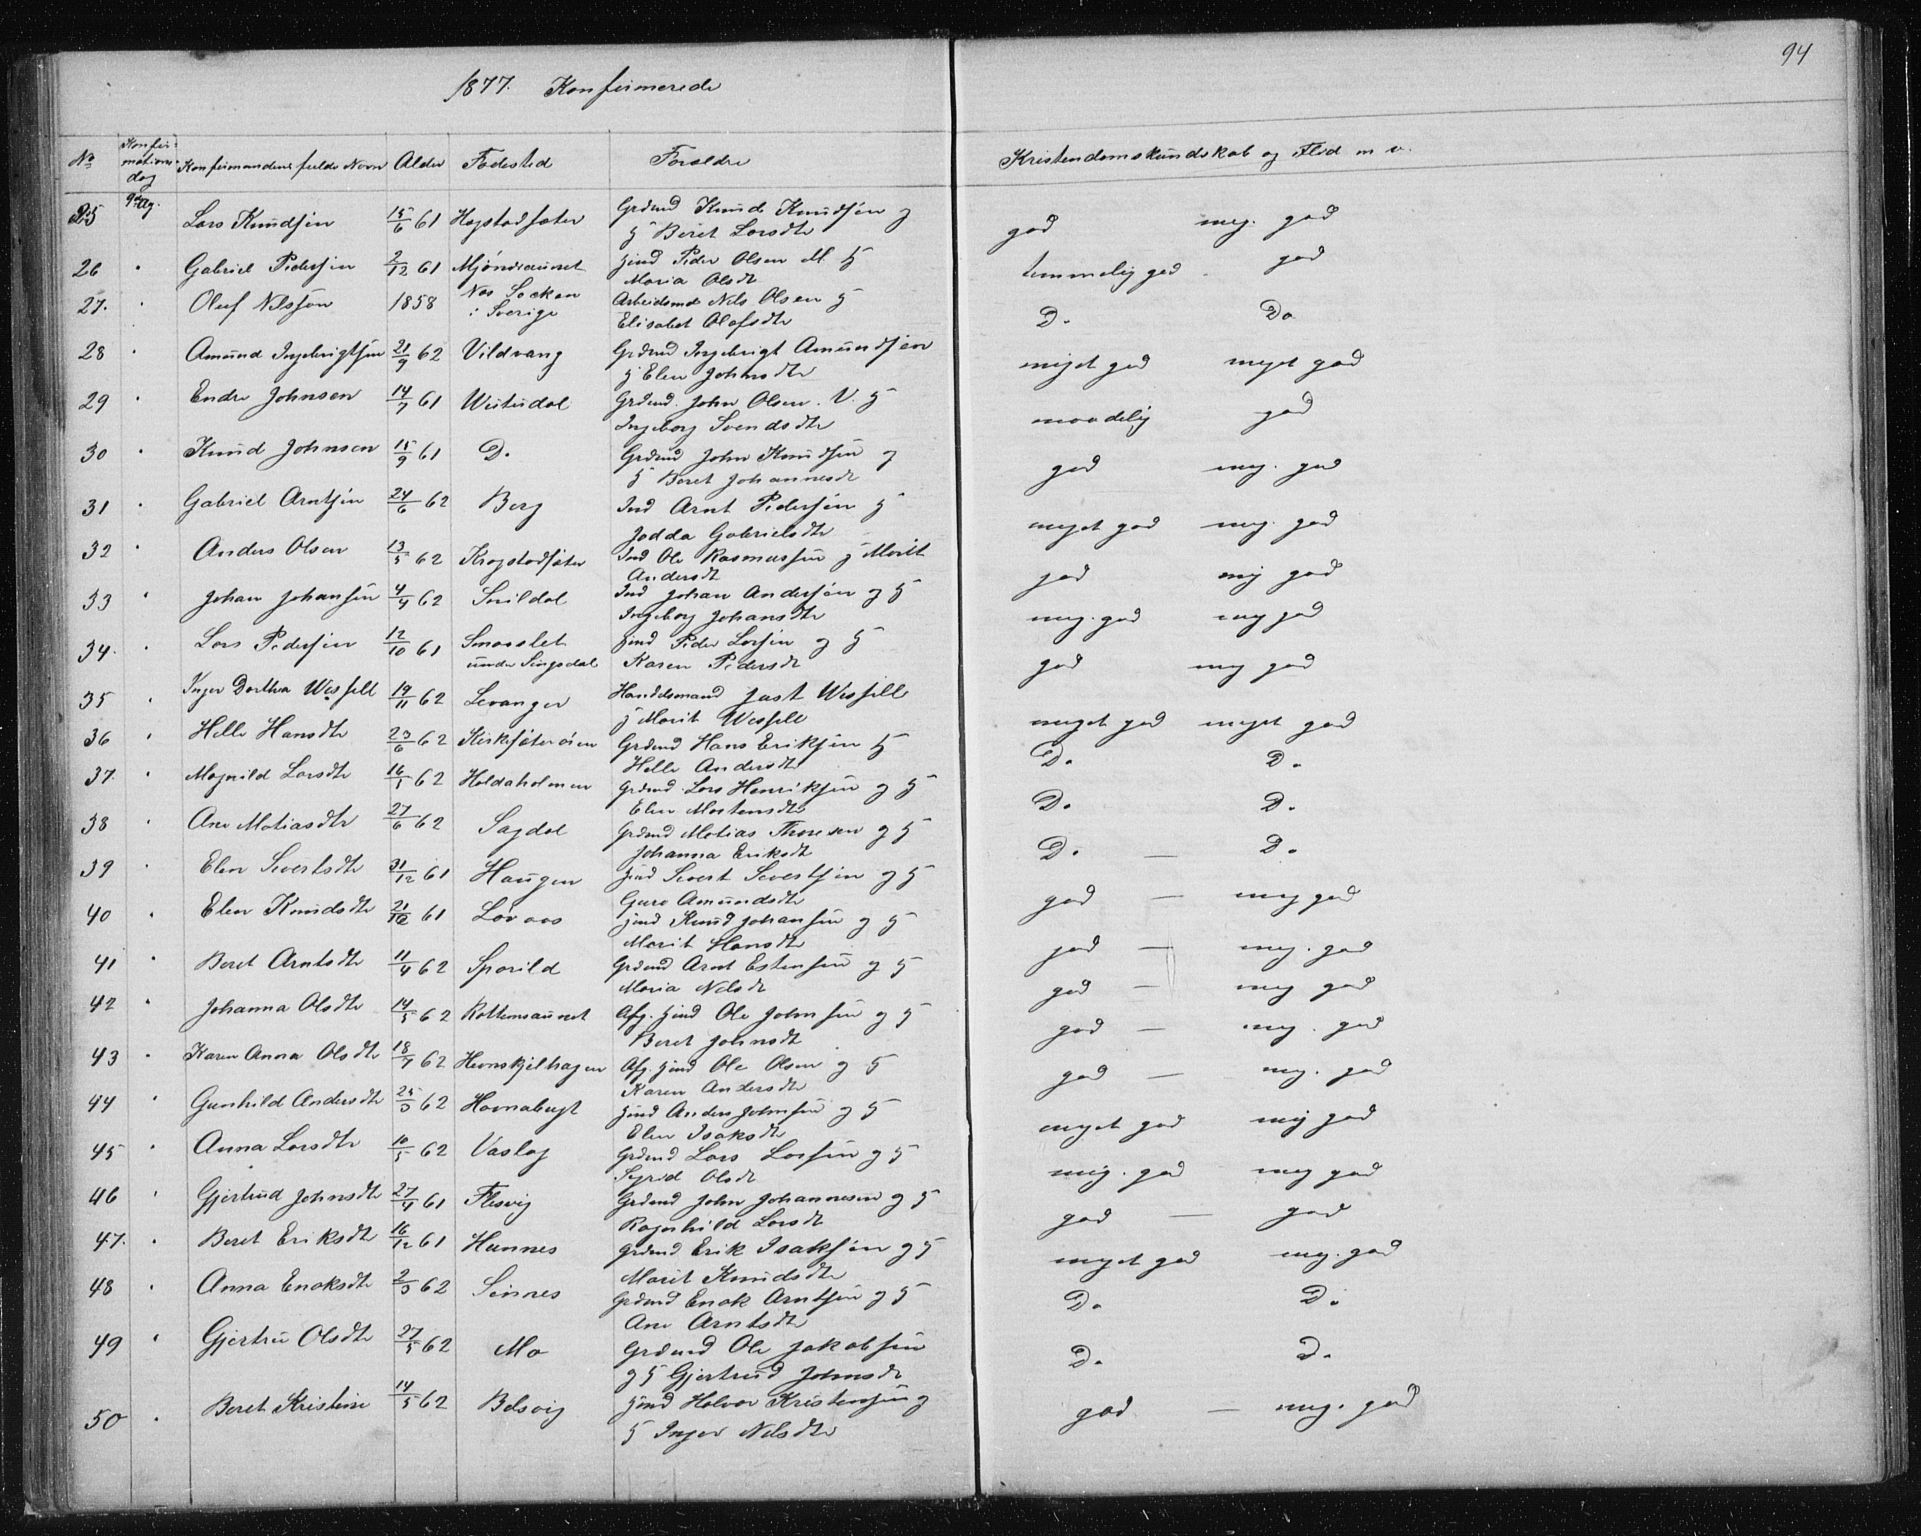 94
1877. Konfirmerede
No Konfirmations dag Konfirmandens fulde Navn Alder Fødested Forældre Kristendomskundskab og Flid m v.
25 9de Ag. Lars Knudsen 15/6 61 Hogstadsæter Grdmd Knud Knudsen og
H Beret Larsdtr god meg. god
26 " Gabriel Pedersen 2/12 61 Mjønesaunet Hmd Peder Olsen M H
Maria Olsdtr temmelig god god
27. " Oluf Nilsson 1858 Nes Socken Arbeidsmd Nils Olsen H
i Sverige Elisabet Olofsdtr Do Do
28 " Amund Ingebrigtsen 21/9 62 Vildvang Grdmd Ingebrigt Amundsen
H Elen Johnsdtr meget god meget god
29 " Endre Johnsen 14/7 61 Westudal Grdmd. John Olsen. V. H
Ingeborg Svendsdtr maadelig god
30 " Knud Johnsen 15/9 61 Do Grdmd John Knudsen og
H Beret Johannesdtr god meg. god
31 " Gabriel Arntsen 24/6 62 Berg Ind Arnt Pedersen H
Jodda Gabrielsdtr meget god meg. god
32 " Anders Olsen 13/5 62 Krogstadsæter Ind Ole Rasmussen H Marit
Andersdtr god meg god
33 " Johan Johansen 4/4 62 Snildal Ind Johan Andersen og H
Ingeborg Johansdtr meg. god meg god
34. " Lars Pedersen 12/10 61 Smaaslet Hmd Peder Larsen og H
under Singsdal Karen Pedersdtr god meg god
35 " Inger Dorthea Wessell 19/11 62 Levanger Handelsmand Jast Wessell
H Marit Wessell meget god meget god
36 " Helle Hansdtr 23/6 62 Kirksæterøien Grdmd Hans Eriksen H
Helle Andersdtr Do Do
37. " Magnild Larsdtr 16/5 62 Holdaholmen Grdmd Lars Henriksen og H
Elen Mortensdtr Do Do
38 " Ane Matiasdtr 27/6 62 Sagdal Grdmd Matias Thoresen og H
Johanna Eriksdtr Do — Do
39 " Elen Sivertsdtr 31/12 61 Haugen Hmd Sivert Sivertsen og H
Guro Amundsdtr god — meg god
40 " Elen Knudsdtr 21/12 61 Løvaas Hmd Knud Johansen og H
Marit Hansdtr god — meg. god
41 " Beret Arntsdtr 11/4 62 Sporild Grdmd Arnt Estensen og H
Maria Nilsdtr god — meg god
42 " Johanna Olsdtr 14/5 62 Rottemsaunet Afg. Hmd Ole Johnsen og H
Beret Johnsdtr god — meg. god
43 " Karen Anna Olsdtr 18/7 62 Hevnskjelhagen Afg. Hmd Ole Olsen og H
Karen Andersdtr god — meg. god
44 " Gunhild Andersdtr 25/3 62 Havnabugt Hmd Anders Johnsen og H
Elen Isaksdtr meget god meg god
45 " Anna Larsdtr 10/5 62 Vaslag Grdmd Lars Larsen og H
Sigrid Olsdtr meg. god meg god
46 " Gjertrud Johnsdtr 27/4 61 Flesvig Grdmd John Johannesen og H
Ragnhild Larsdtr god — god
47. " Beret Eriksdtr 16/12 61 Hunnes Grdmd Erik Isaksen og H
Marit Knudsdtr meget god meg. god
48 " Anna Enoksdtr 2/3 62 Sinnes Grdmd Enok Arntsen og H
Ane Arntsdtr Do Do
49 " Gjertru Olsdtr 27/5 62 Mo Grdmd Ole Jakobsen
og H Gjertrud Johnsdtr Do Do
50 " Beret Kristine 14/5 62 Belsvig Hmd Halvor Kristensen og
H Inger Nilsdtr god — meg. god